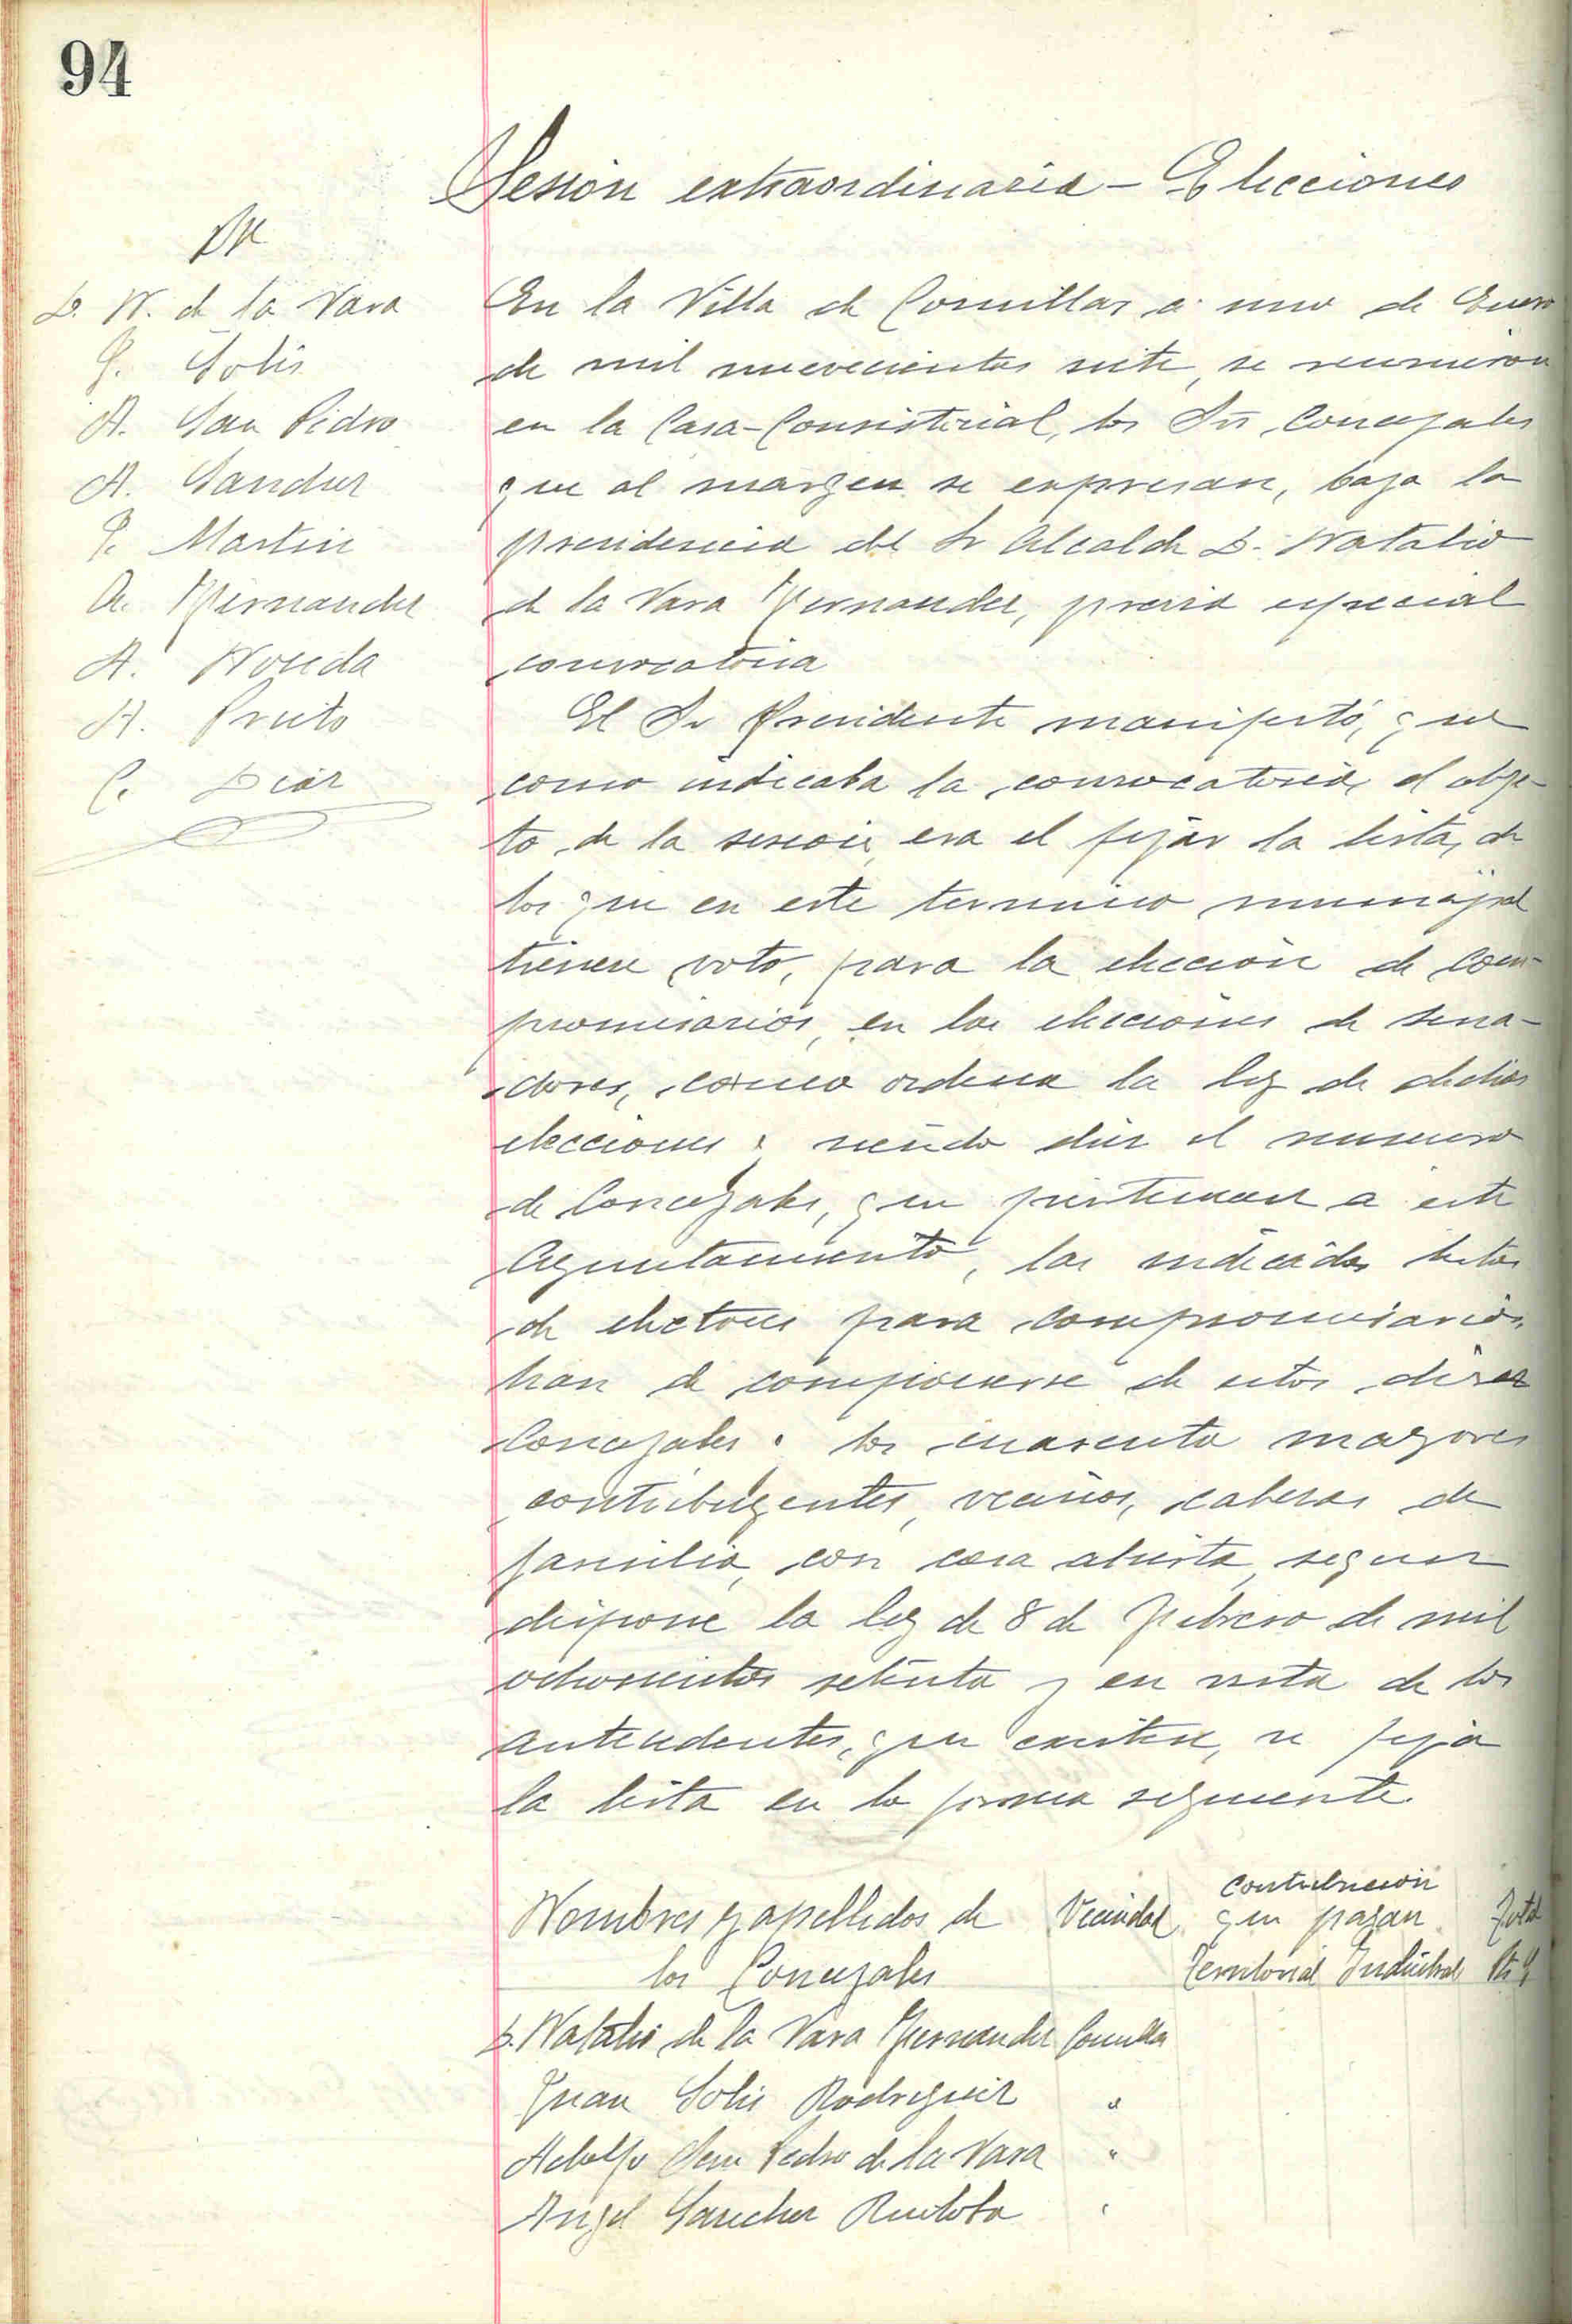 94
Sesión extraordinaria - Elecciones
D. N. de la Vara
J. Solis
A. San Pedro
A. Sanchez
J. Martin
A. Fernandez
A. Noceda
A. Prieto
C. Diaz
En la Villa de Comillas a uno de Enero
de mil nuevecientos siete, se reunieron
en la Casa-Consistorial, los Srs Concejales
que al margen se expresan, bajo la
presidencia del Sr Alcalde D. Natalio
de la Vara Fernandez, previa especial
convocatoria
El Sr Presidente manifestó, que
como indicaba la convocatoria, el obje-
to de la sesion, era el fijar la lista, de
los que en este termino municipal
tienen voto, para la elección de com-
promisarios, en las elecciones de sena-
dores, como ordena la ley de dichas
elecciones; siendo diez el numero
de Concejales, que pertenecen a este
Ayuntamiento, las indicadas listas
de electores para compromisarios,
han de componerse de estos diez
Concejales y los cuarenta mayores
contribuyentes, vecinos, cabezas de
familia, con casa abierta, segun
dispone la ley de 8 de Febrero de mil
ochocientos setenta y en vista de los
antecedentes, que existen, se fija
la lista en la forma siguiente.
Nombres y apellidos de los Concejales
Vecindad
Contribución que pagan
Territorial Industrial
Total
D. Natalio de la Vara Fernandez Comillas
Juan Solis Rodriguez "
Adolfo San Pedro de la Vara "
Angel Sanchez Ruiloba "